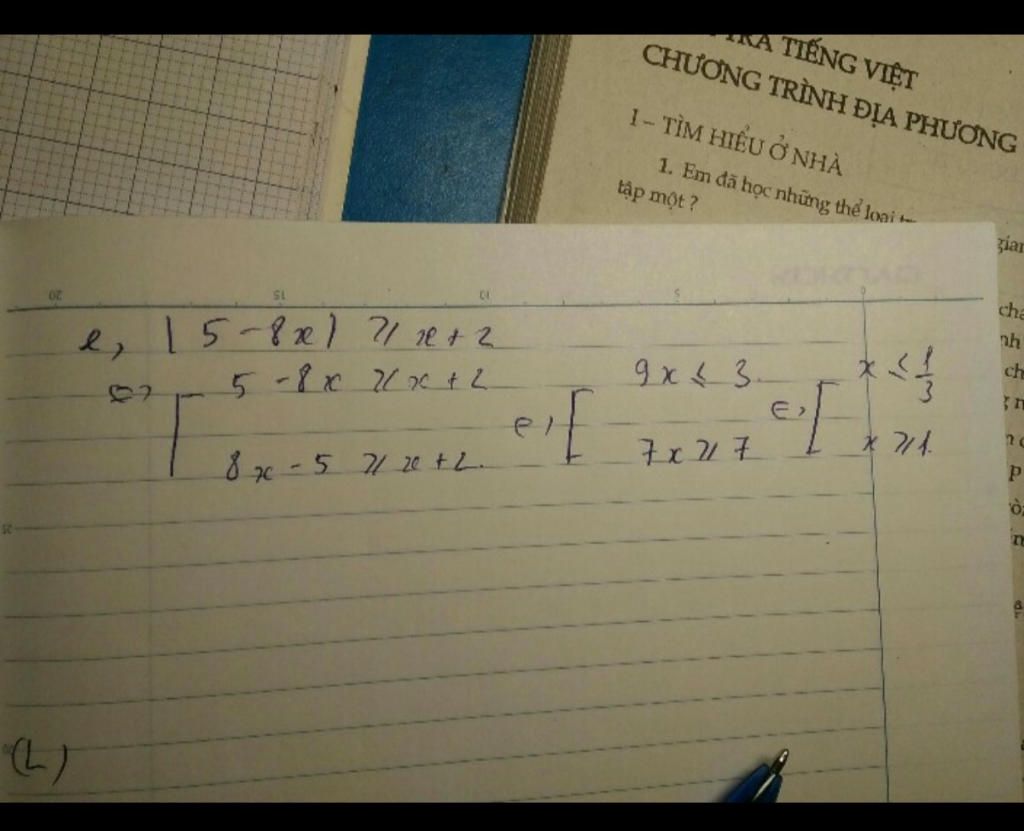 TRA TIẾNG VIỆT
CHƯƠNG TRÌNH ĐỊA PHƯƠNG
I – TÌM HIỂU Ở NHÀ
1. Em đã học những thể loại
tập một ?
20 15 10 5 0
e, |5 - 8x| ≥ x + 2
⇔ [ 5 - 8x ≥ x + 2 ⇔ [ 9x ≤ 3 ⇔ [ x ≤ 1/3
8x - 5 ≥ x + 2 7x ≥ 7 x ≥ 1
25
(L)